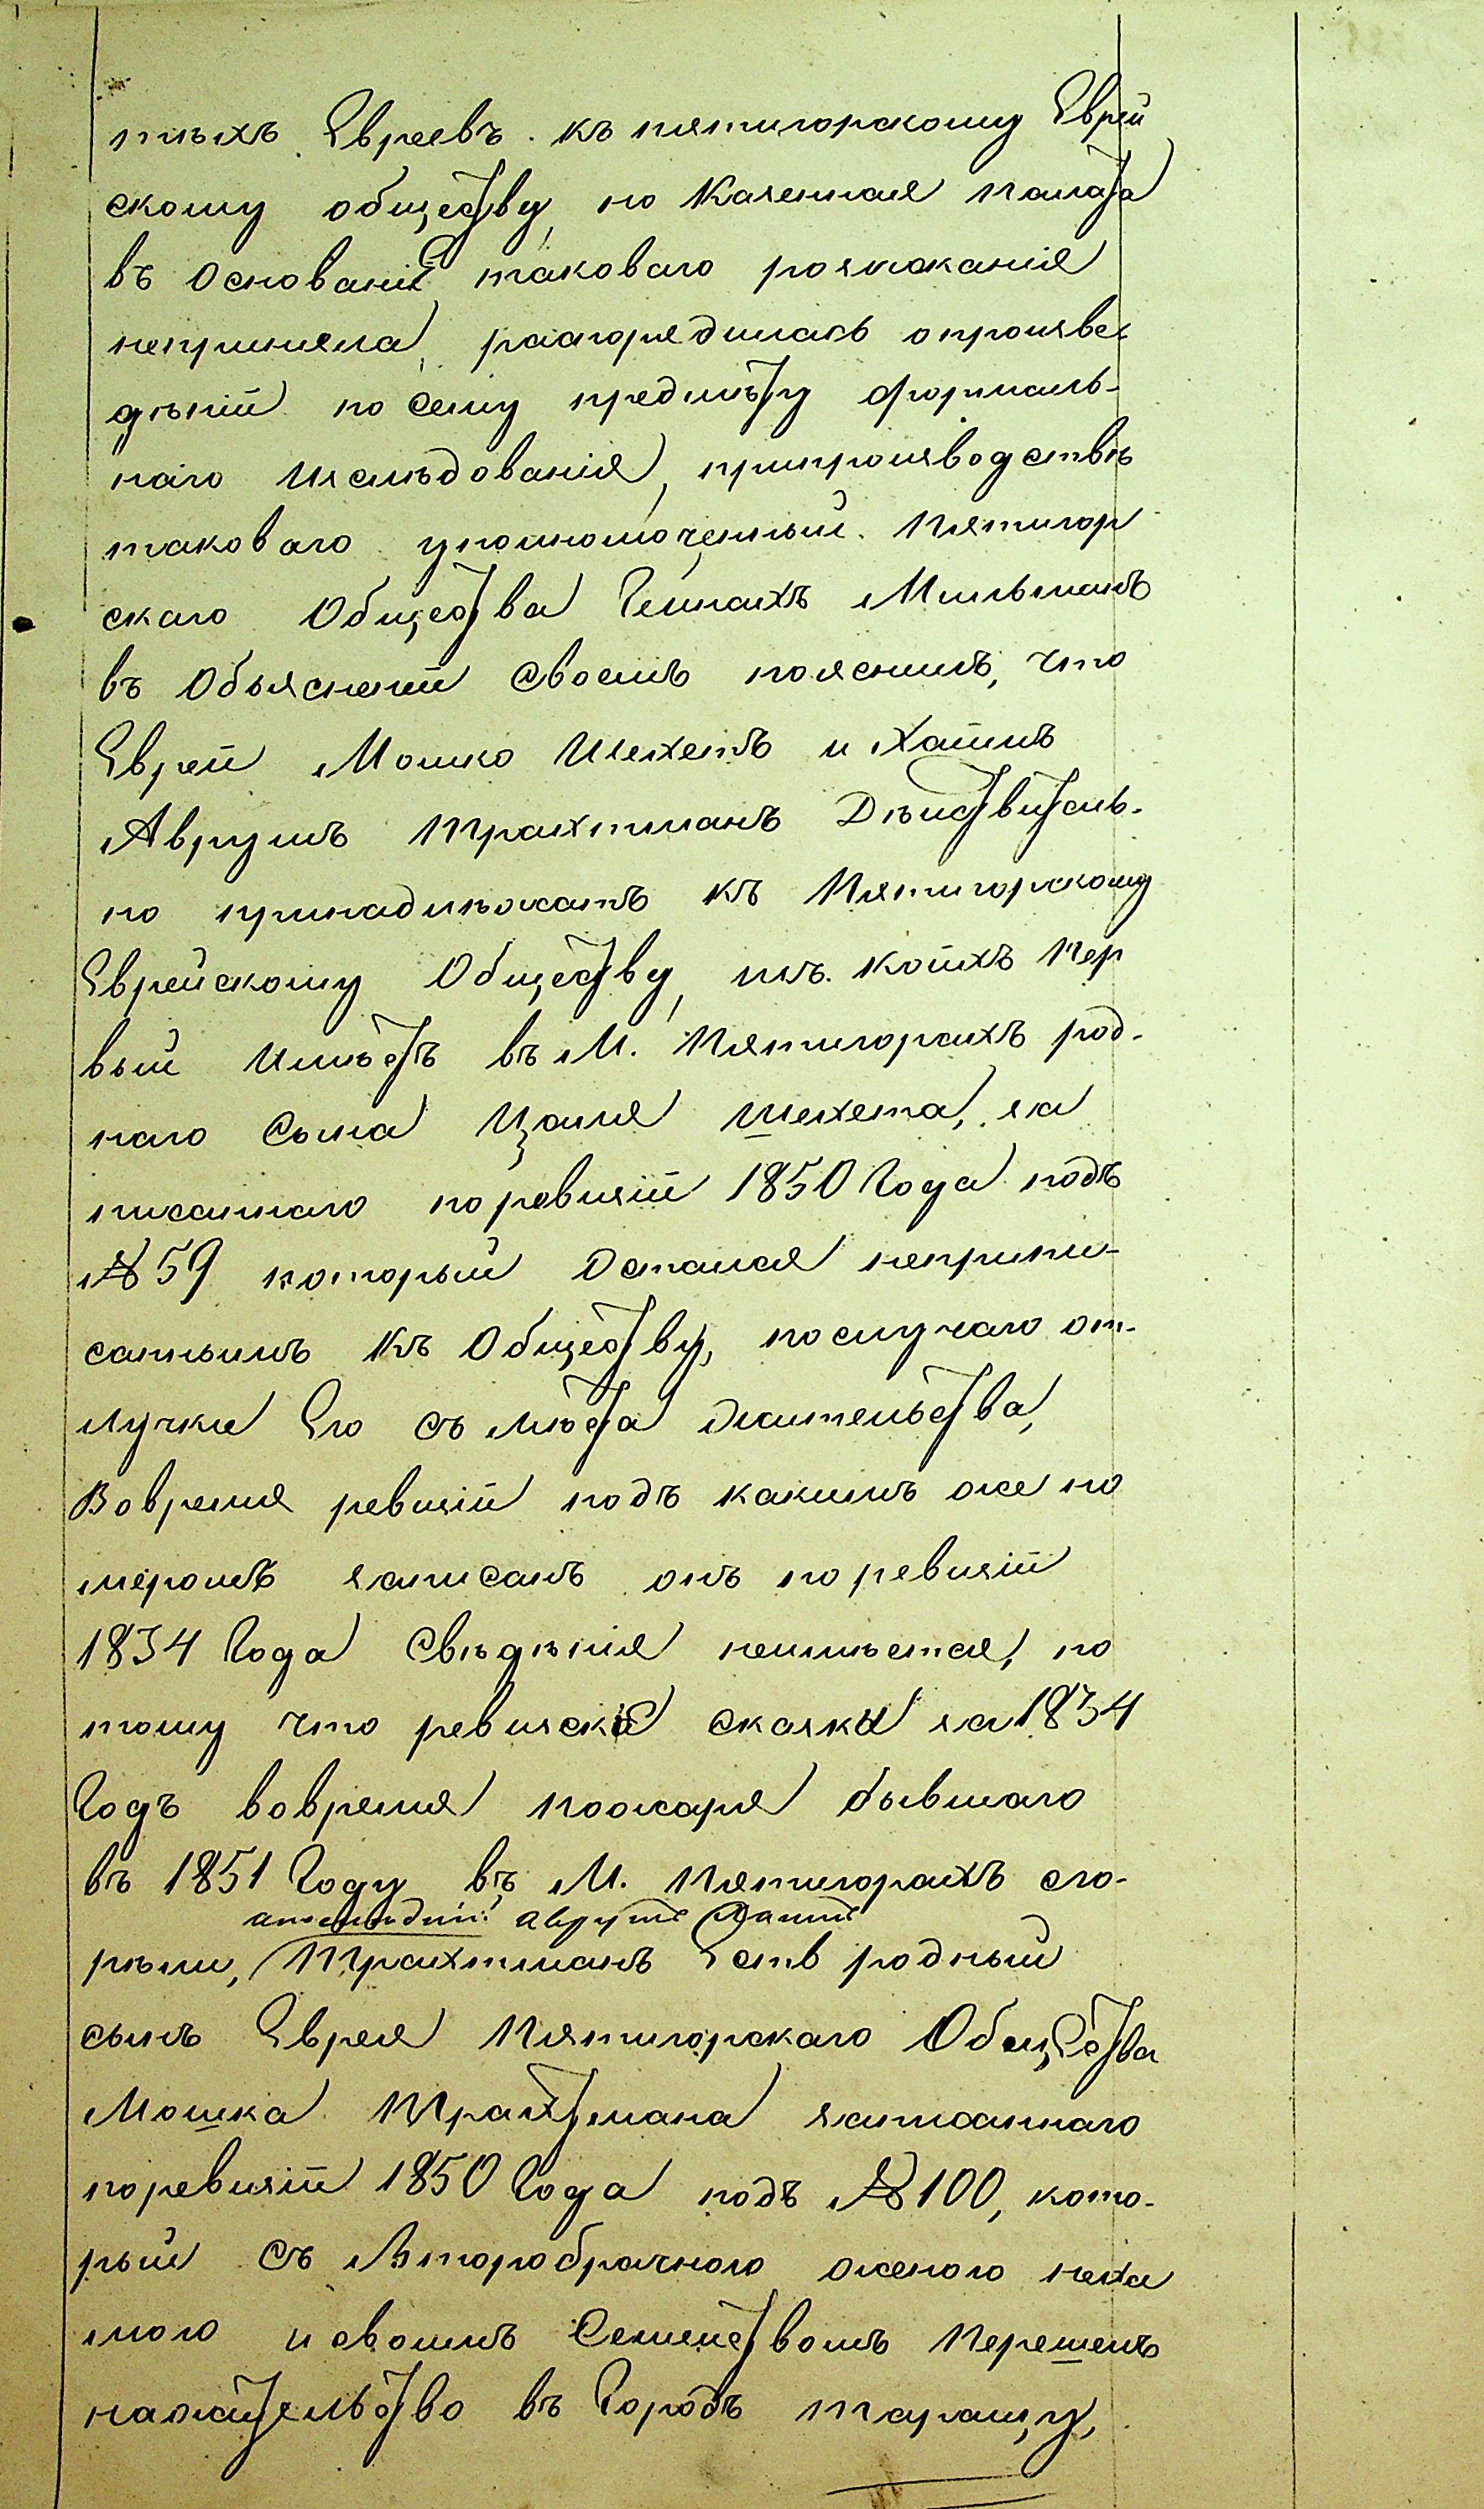 тныхъ Евреевъ къ пятигорскому Еврей
скому обществу, но Казенная палата
въ Основаніе таковаго розысканія
непринела, распоредилась опроизве-
дѣніи по сему предмѣту формаль-
наго Изслѣдованія, припроизводствѣ
таковаго уполномоченный Пятигор
скаго Общества Мильманъ
въ Объясненіи своемъ пояснилъ, что
Евреи Мошко Шехетъ и Хаимъ
Аврумъ Трахтманъ Дѣйствитель-
но принадлѣжатъ къ Пятигорскому
Еврейскому Обществу, изъ коихъ Пер
вый Имѣетъ въ М. Пятигорахъ род-
наго Сына Цаля Шехета, за
писаннаго поревизіи 1850 Года подъ
№ 59 который Остался неприпи-
саннымъ Къ Обществу, послучаю от-
лучки Его съ мѣста жительства,
Вовремя ревизіи подъ какимъ же но
меромъ записанъ онъ поревизіи
1834 Года Свѣдѣнія неимѣется, по
тому что ревизскіе сказки за 1834
Годъ вовремя пожара бывшаго
въ 1851 Году въ М. Пятигорахъ сго-
апослѣдній Аврумъ Хаимъ
рѣли, Трахтманъ Есть родный
сынъ Еврея Пятигорскаго Общества
Мошка Трахтмана записаннаго
поревизіи 1850 Года подъ № 100, кото-
рый съ Второбрачною женою неха
мою исвоимъ Семействомъ Перешелъ
нажительство въ Городъ Таращу,